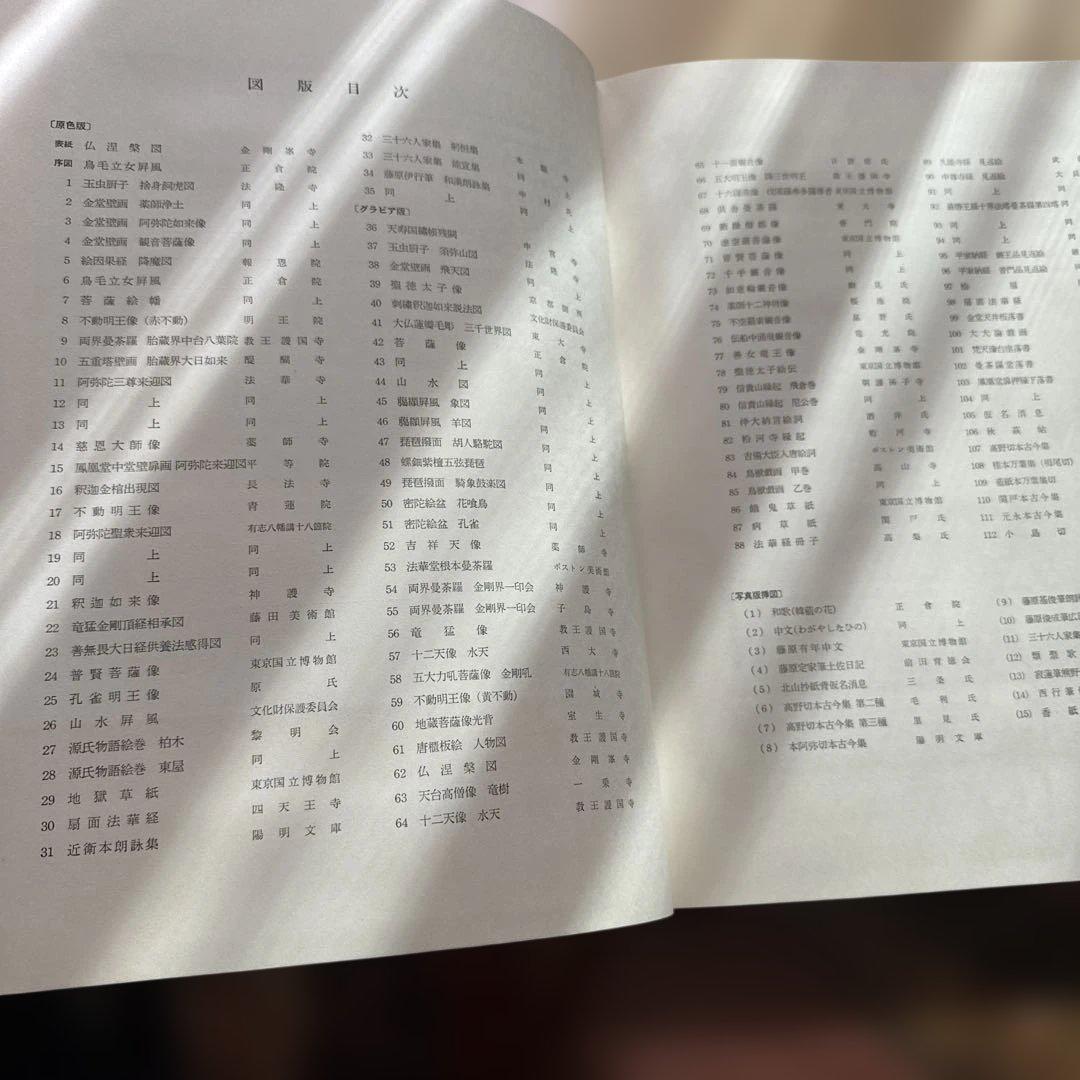 図版目次
〔原色版〕
表紙 仏涅槃図 金剛峯寺
序図 鳥毛立女屏風 正倉院
1 玉虫厨子 捨身飼虎図 法隆寺
2 金堂壁画 薬師浄土 同上
3 金堂壁画 阿弥陀如来像 同上
4 金堂壁画 観音菩薩像 同上
5 絵因果経 降魔図 報恩院
6 鳥毛立女屏風 正倉院
7 菩薩絵幡 同上
8 不動明王像(赤不動) 明王院
9 両界曼荼羅 胎蔵界中台八葉院 教王護国寺
10 五重塔壁画 胎蔵界大日如来 醍醐寺
11 阿弥陀三尊来迎図 法華寺
12 同上 同上
13 同上 同上
14 慈恩大師像 薬師寺
15 鳳凰堂中堂壁扉画 阿弥陀来迎図 平等院
16 釈迦金棺出現図 長法寺
17 不動明王像 青蓮院
18 阿弥陀聖衆来迎図 有志八幡講十八箇院
19 同上 同上
20 同上 同上
21 釈迦如来像 神護寺
22 竜猛金剛頂経相承図 藤田美術館
23 善無畏大日経供養法感得図 同上
24 普賢菩薩像 東京国立博物館
25 孔雀明王像 原氏
26 山水屏風 文化財保護委員会
27 源氏物語絵巻 柏木 黎明会
28 源氏物語絵巻 東屋 同上
29 地獄草紙 東京国立博物館
30 扇面法華経 四天王寺
31 近衛本朗詠集 陽明文庫
32 三十六人家集 躬恒集
33 三十六人家集 能宣集 同上
34 藤原伊行筆 和漢朗詠集
35 同上 同上
〔グラビア版〕
36 天寿国繡帳残闕
37 玉虫厨子 須弥山図 法隆寺
38 金堂壁画 飛天図 同上
39 聖徳太子像
40 刺繡釈迦如来説法図 文化財保護委員会
41 大仏蓮瓣毛彫 三千世界図 東大寺
42 菩薩像 正倉院
43 同上 同上
44 山水図 同上
45 﨟纈屏風 象図 同上
46 﨟纈屏風 羊図 同上
47 琵琶撥面 胡人駱駝図 同上
48 螺鈿紫檀五弦琵琶 同上
49 琵琶撥面 騎象鼓楽図 同上
50 密陀絵盆 花喰鳥 同上
51 密陀絵盆 孔雀 同上
52 吉祥天像 薬師寺
53 法華堂根本曼荼羅 ボストン美術館
54 両界曼荼羅 金剛界一印会 神護寺
55 両界曼荼羅 金剛界一印会 子島寺
56 竜猛像 教王護国寺
57 十二天像 水天 西大寺
58 五大力吼菩薩像 金剛吼 有志八幡講十八箇院
59 不動明王像(黄不動) 園城寺
60 地蔵菩薩像光背 室生寺
61 唐櫃板絵 人物図 教王護国寺
62 仏涅槃図 金剛峯寺
63 天台高僧像 竜樹 一乗寺
64 十二天像 水天 教王護国寺
65 十一面観音像
66 五大明王像 降三世明王 教王護国寺
67 十六羅漢像 東京国立博物館
68 倶舎曼荼羅 東大寺
69 勤操僧都像 普門院
70 虚空蔵菩薩像 東京国立博物館
71 普賢菩薩像 同上
72 千手観音像 同上
73 如意輪観音像
74 薬師十二神将像 桜池院
75 不空羂索観音像
76 伝船中湧現観音像 竜光院
77 善女竜王像 金剛峯寺
78 聖徳太子絵伝 東京国立博物館
79 信貴山縁起 飛倉巻 朝護孫子寺
80 信貴山縁起 尼公巻 同上
81 伴大納言絵詞 酒井氏
82 粉河寺縁起 粉河寺
83 吉備大臣入唐絵詞 ボストン美術館
84 鳥獣戯画 甲巻 高山寺
85 鳥獣戯画 乙巻 同上
86 餓鬼草紙 東京国立博物館
87 病草紙 関戸氏
88 法華経冊子
93 同上
94 同上
95 平家納経 見返絵
96 平家納経 普門品見返絵
99 金堂天井板落書
101 梵天像台座落書
102 曼荼羅堂落書
103 鳳凰堂扉押縁下落書
104 同上
105 仮名消息
106 秋萩帖
107 高野切本古今集
108 桂本万葉集
109 藍紙本万葉集切
110 関戸本古今集
111 元永本古今集
112 小島切
〔写真版挿図〕
(1) 和歌(韓藍の花) 正倉院
(2) 中文(わがやしなひの) 同上
(3) 藤原有年申文 東京国立博物館
(4) 藤原定家筆土佐日記 前田育徳会
(5) 北山抄紙背仮名消息 三条氏
(6) 高野切本古今集 第二種 毛利氏
(7) 高野切本古今集 第三種 里見氏
(8) 本阿弥切本古今集 陽明文庫
(9) 藤原基俊筆朗詠
(10) 藤原俊成筆広
(11) 三十六人家集
(12) 類聚歌
(13) 寂蓮筆熊野
(14) 西行筆
(15) 香紙